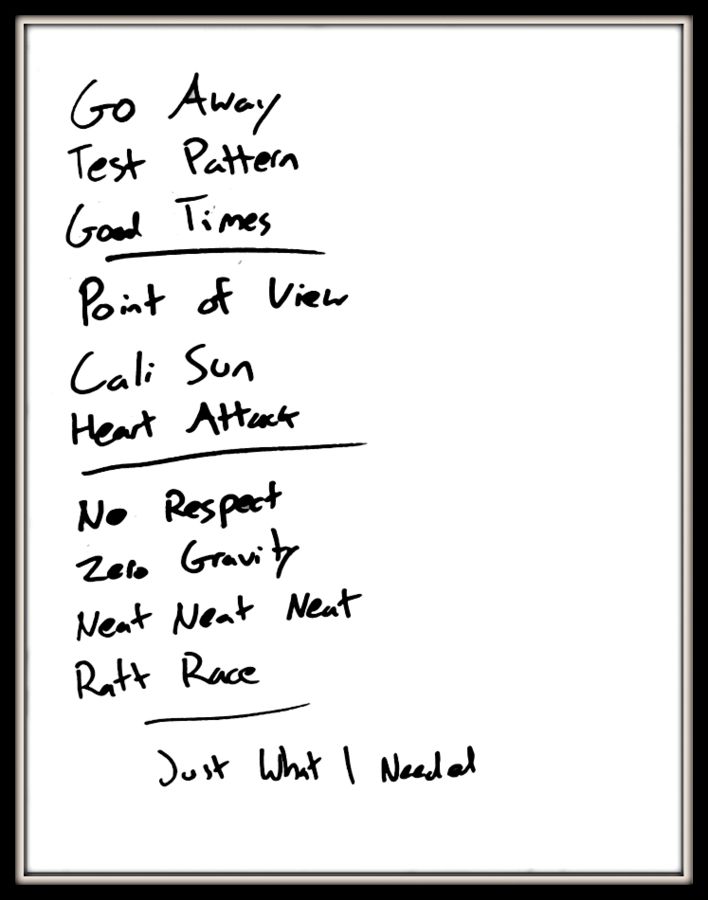 Go Away
Test Pattern
Good Times
Point of View
Cali Sun
Heart Attack
No Respect
Zero Gravity
Neat Neat Neat
Ratt Race
Just What I Needed